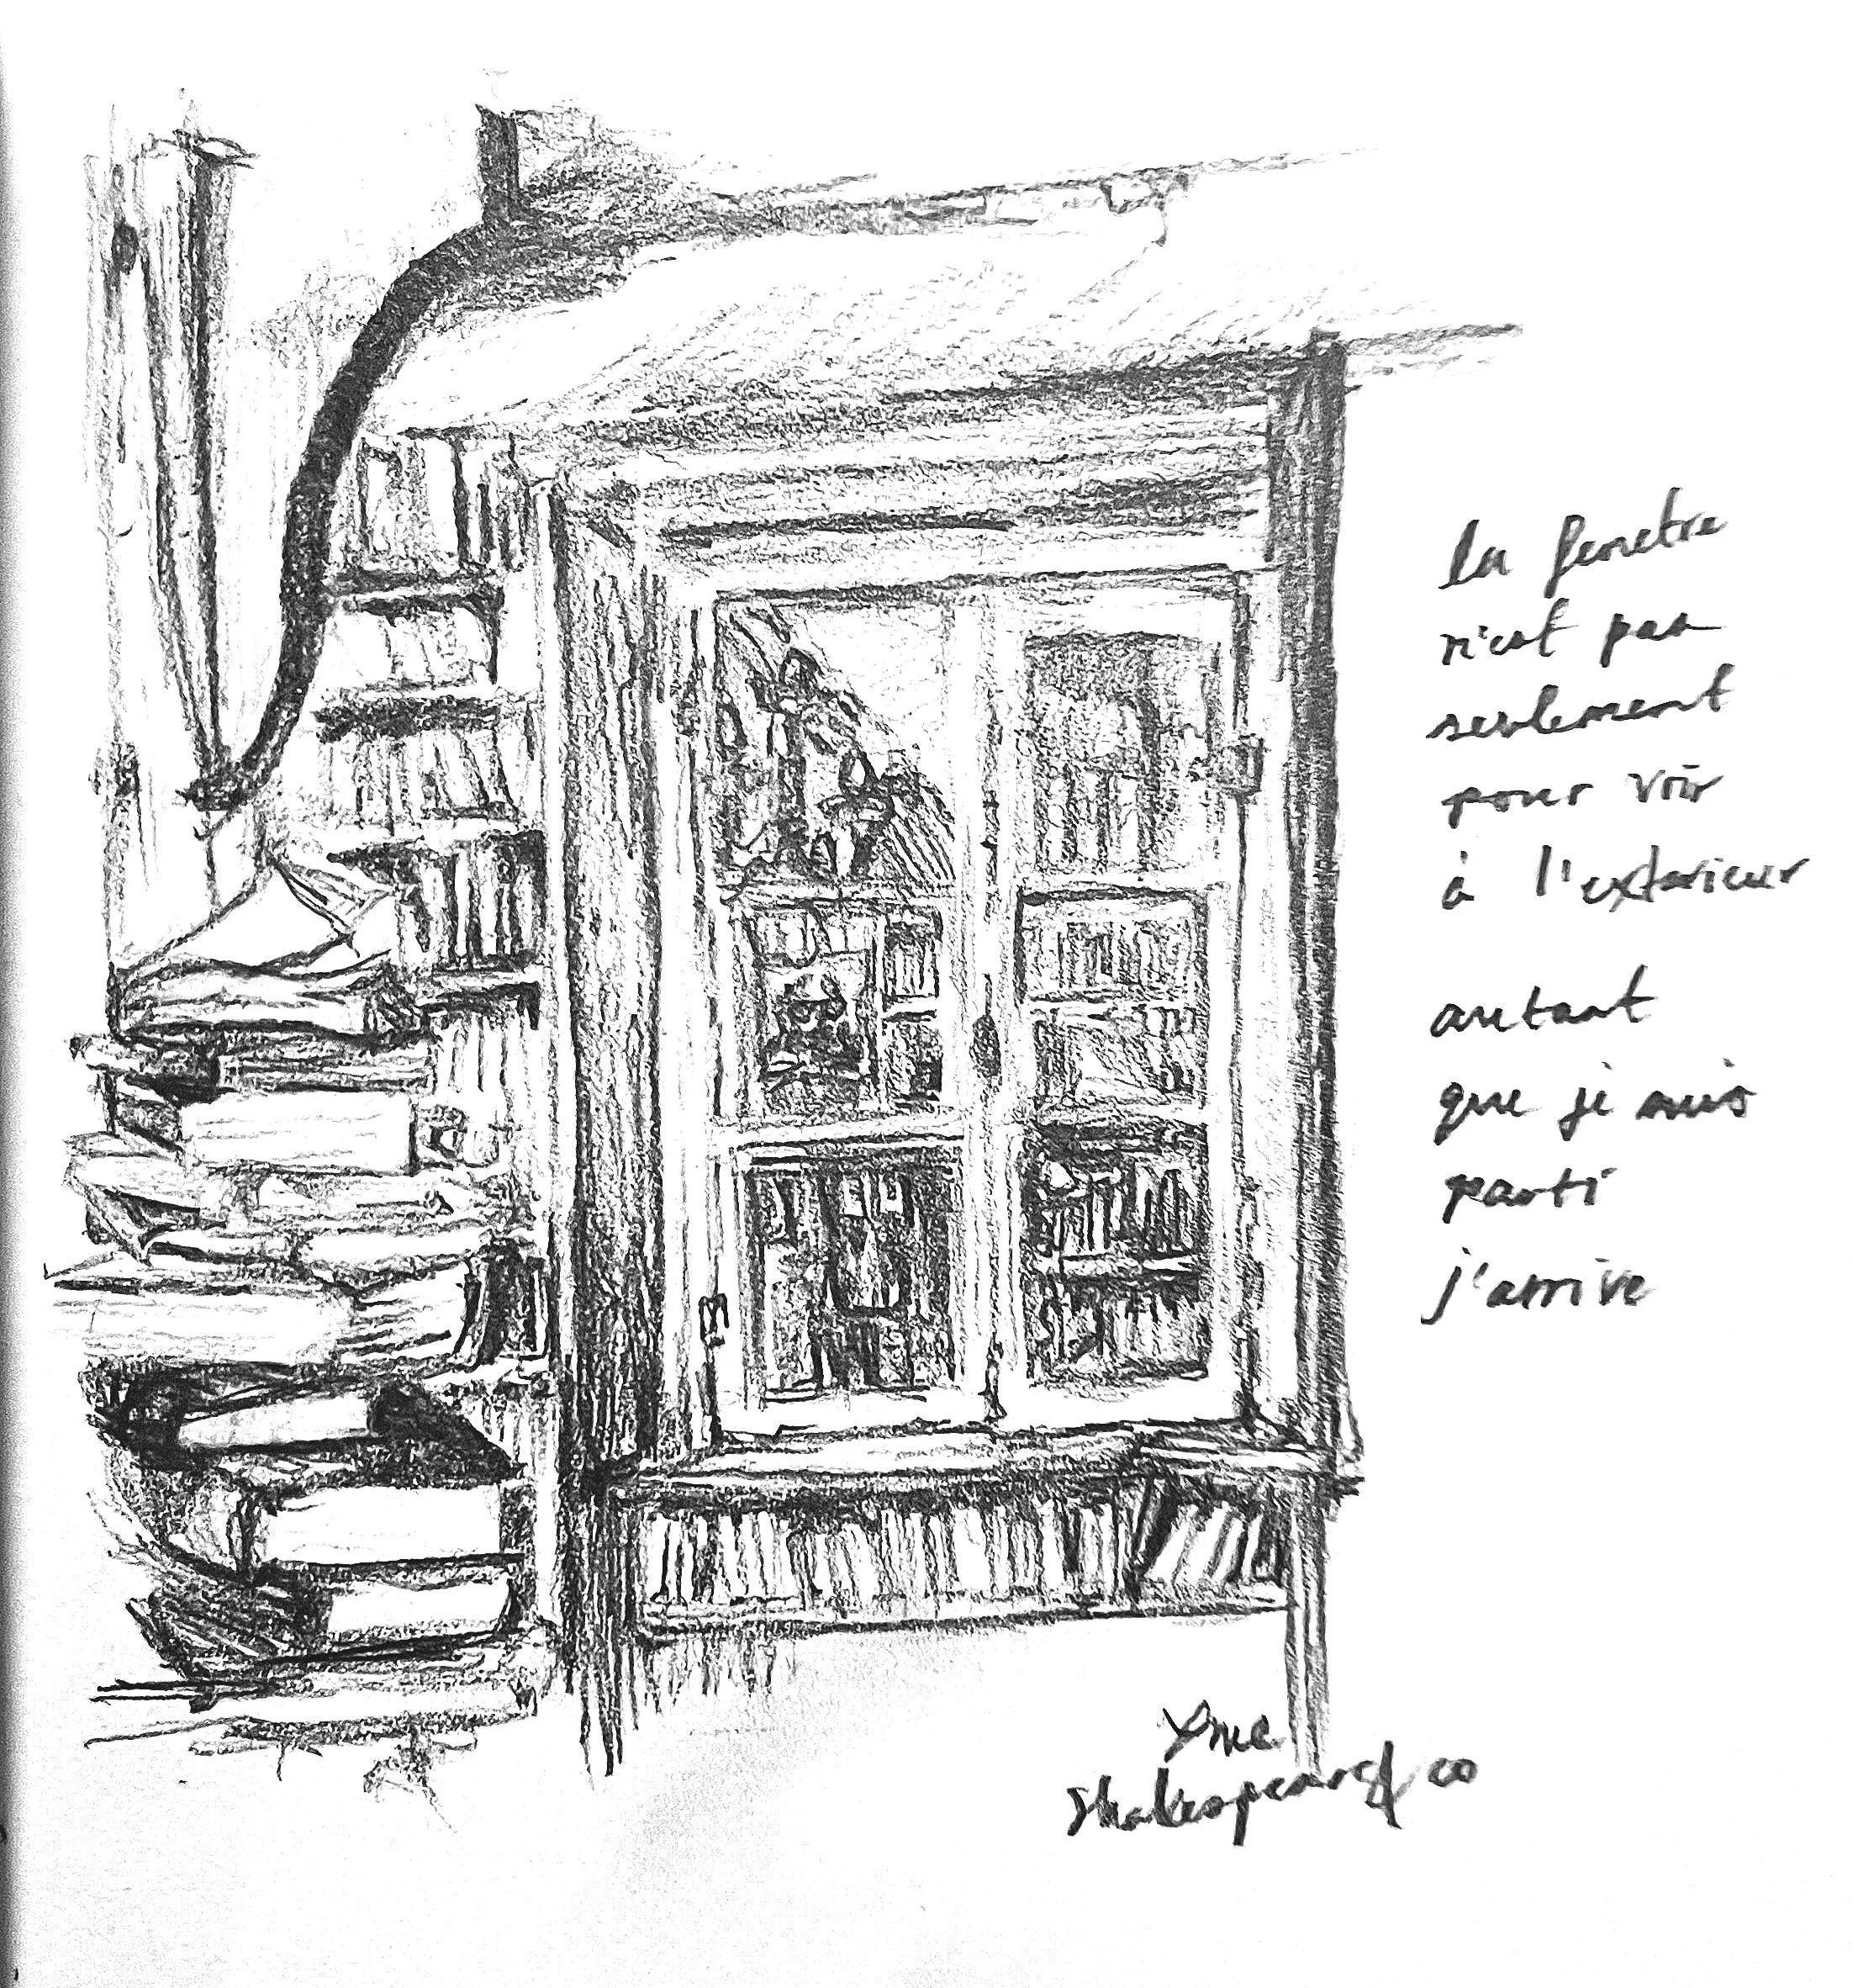 la fenetre
n'est pas
seulement
pour voir
à l'exterieur
autant
que je suis
parti
j'arrive
Shakespeare & co